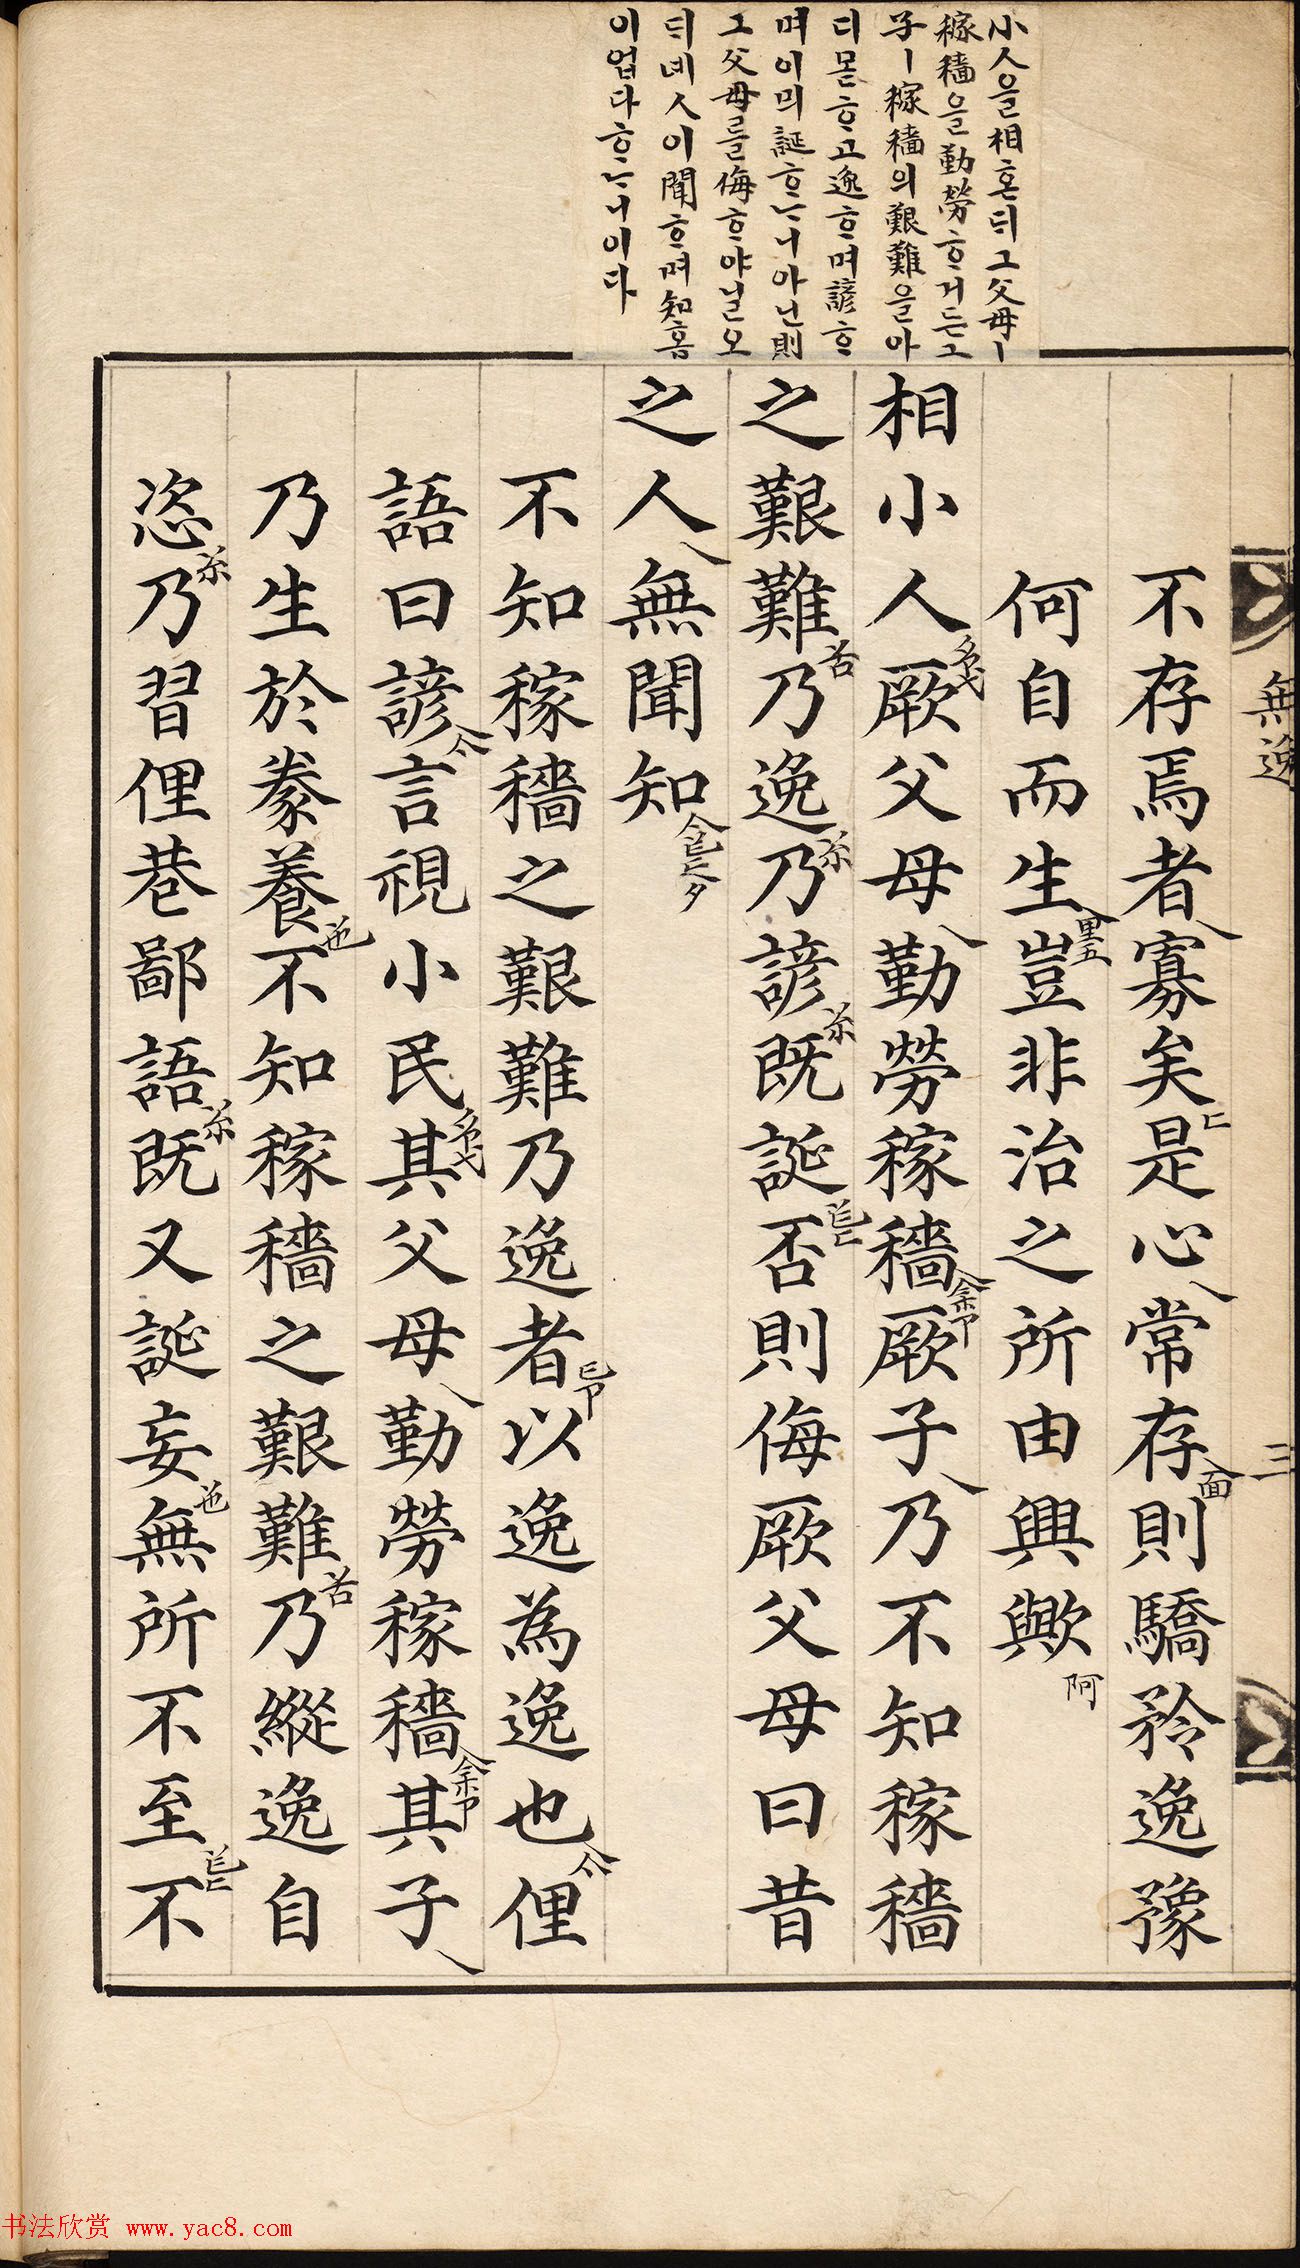 小人을相혼ᄃᆡ그父母ㅣ
稼穡을勤勞ᄒᆞ거든그
子ㅣ稼穡의艱難을아
디몯ᄒᆞ고逸ᄒᆞ며諺ᄒᆞ
며이믜誕ᄒᆞᄂᆞ니아닌則
그父母를侮ᄒᆞ야닐오
ᄃᆡ녜人이聞ᄒᆞ며知홈
이업다ᄒᆞᄂᆞ니이다
無逸
三
不存焉者寡矣是心常存面則驕矜逸豫
何自而生里五豈非治之所由興歟阿
相小人厥父母勤勞稼穡厥子乃不知稼穡
之艱難乃逸乃諺既誕否則侮厥父母曰昔
之人無聞知
不知稼穡之艱難乃逸者以逸為逸也俚
語曰諺言視小民其父母勤勞稼穡其子
乃生於豢養不知稼穡之艱難乃縱逸自
恣乃習俚巷鄙語既又誕妄無所不至不
书法欣赏 www.yac8.com